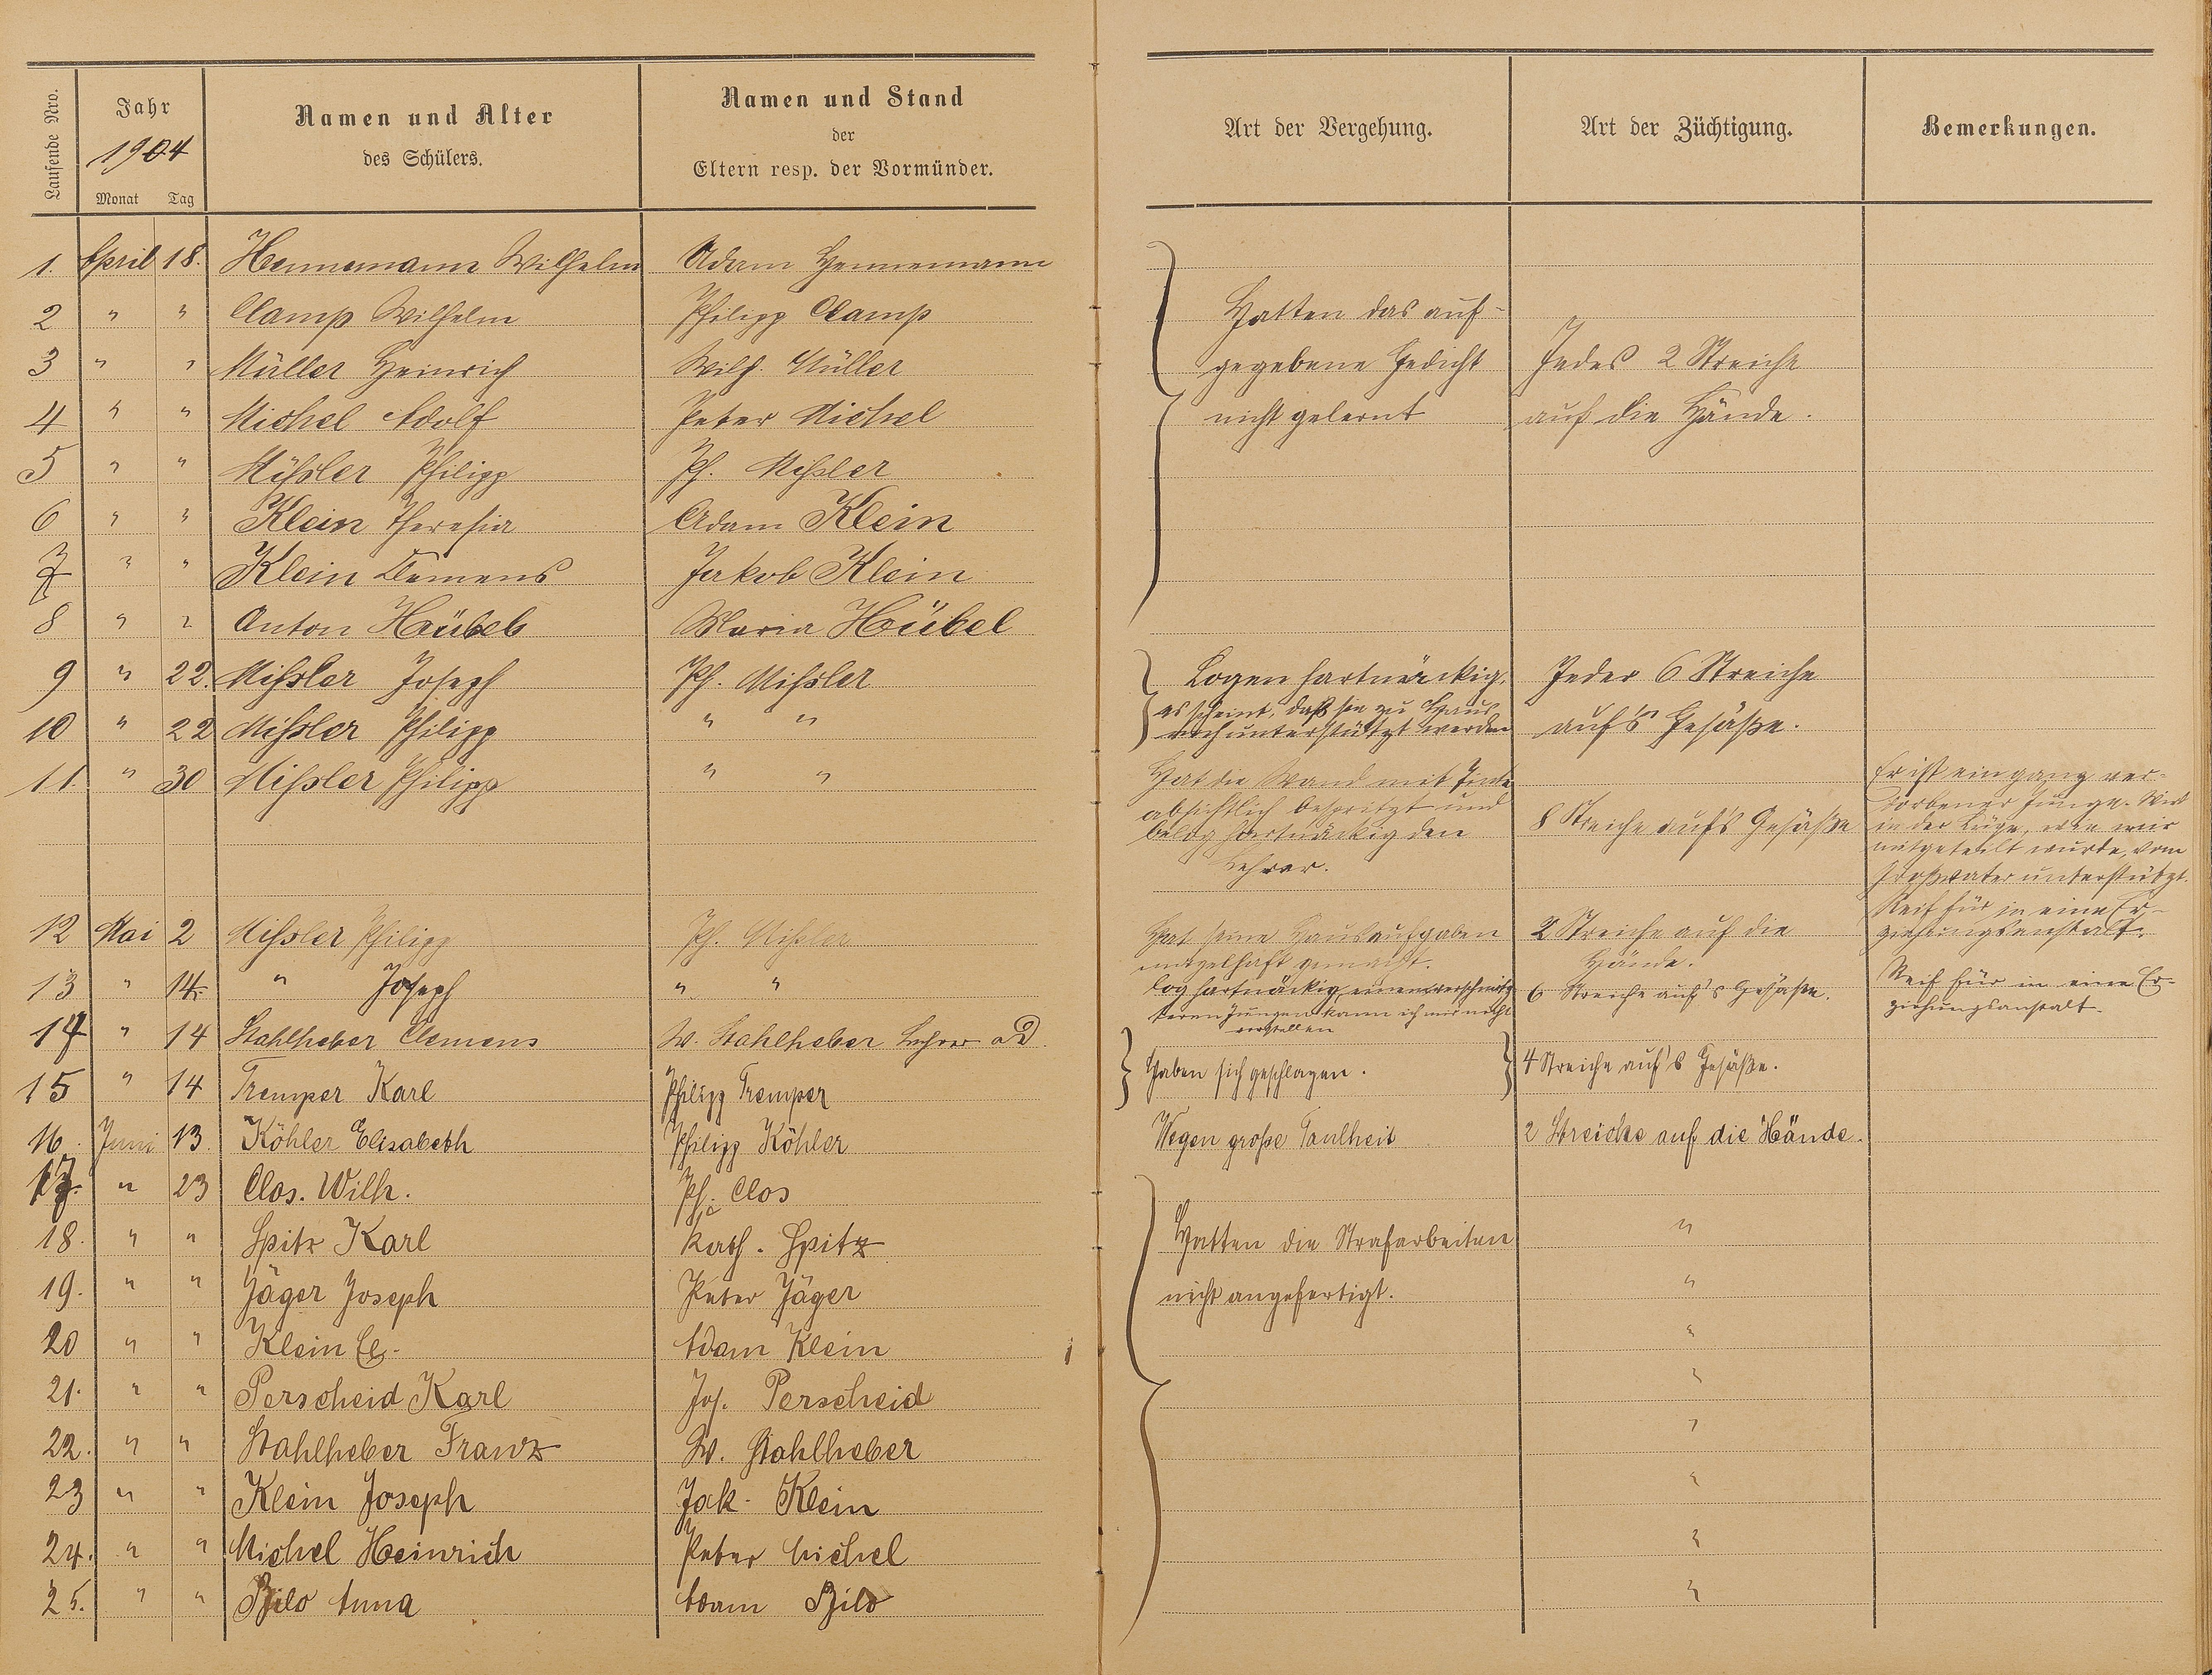 Laufende Nro.
Jahr
1904
Monat Tag
Namen und Alter
des Schülers.
Namen und Stand
der
Eltern resp. der Vormünder.
Art der Vergehung.
Art der Züchtigung.
Bemerkungen.
1. April 18. Hennemann Wilhelm Adam Hennemann
2 " " Clamp Wilhelm Philipp Clamp Hatten das auf-
3 " " Müller Heinrich Wilh. Müller gegebene Gedicht Jedes 2 Streiche
4 " " Michel Adolf Peter Michel nicht gelernt auf die Hände.
5 " " Mißler Philipp Ph. Mißler
6 " " Klein Theresia Adam Klein
7 " " Klein Clemens Jakob Klein
8 " " Anton Hübel Maria Hübel
9 " 22. Mißler Joseph Ph. Mißler Logen hartnäckig, Jeder 6 Streiche
es scheint, daß sie zu Haus
10 " 22 Mißler Philipp " " noch unterstützt werden auf's Gesäße.
11. " 30 Mißler Philipp " " Hat die Wand mit Tinte
absichtlich bespritzt und
belog hartnäckig den
Lehrer.
8 Streiche auf's Gesäße
Er ist ein ganz ver-
dorbener Junge. Wird
in der Lüge, wie mir
mitgeteilt wurde, vom
Großvater unterstützt.
Reif für in eine Er-
ziehungsanstalt.
12 Mai 2 Mißler Philipp Ph. Mißler Hat seine Hausaufgaben 2 Streiche auf die
mangelhaft gemacht. Hände.
13 " 14. " Joseph " " log hartnäckig, einen verschmitz- 6 Streiche auf's Gesäße. Reif für in eine Er-
teren Jungen kann ich mir nicht ziehungsanstalt.
vorstellen
14 " 14 Stahlheber Clemens W. Stahlheber Lehrer a D.
Haben sich geschlagen. 4 Streiche auf's Gesäße.
15 " 14 Tremper Karl Philipp Tremper
16. Juni 13. Köhler Elisabeth Philipp Köhler Wegen große Faulheit 2 Streiche auf die Hände.
17. " 23 Clos. Wilh. Ph. Clos
18. " " Spitz Karl Kath. Spitz Hatten die Strafarbeiten "
19. " " Jäger Joseph Peter Jäger nicht angefertigt. "
20 " " Klein Adam Klein "
21. " " Perscheid Karl Jos. Perscheid "
22. " " Stahlheber Franz W. Stahlheber "
23 " " Klein Joseph Jak. Klein "
24. " " Michel Heinrich Peter Michel "
25. " " Bilo Anna Adam Bilo "